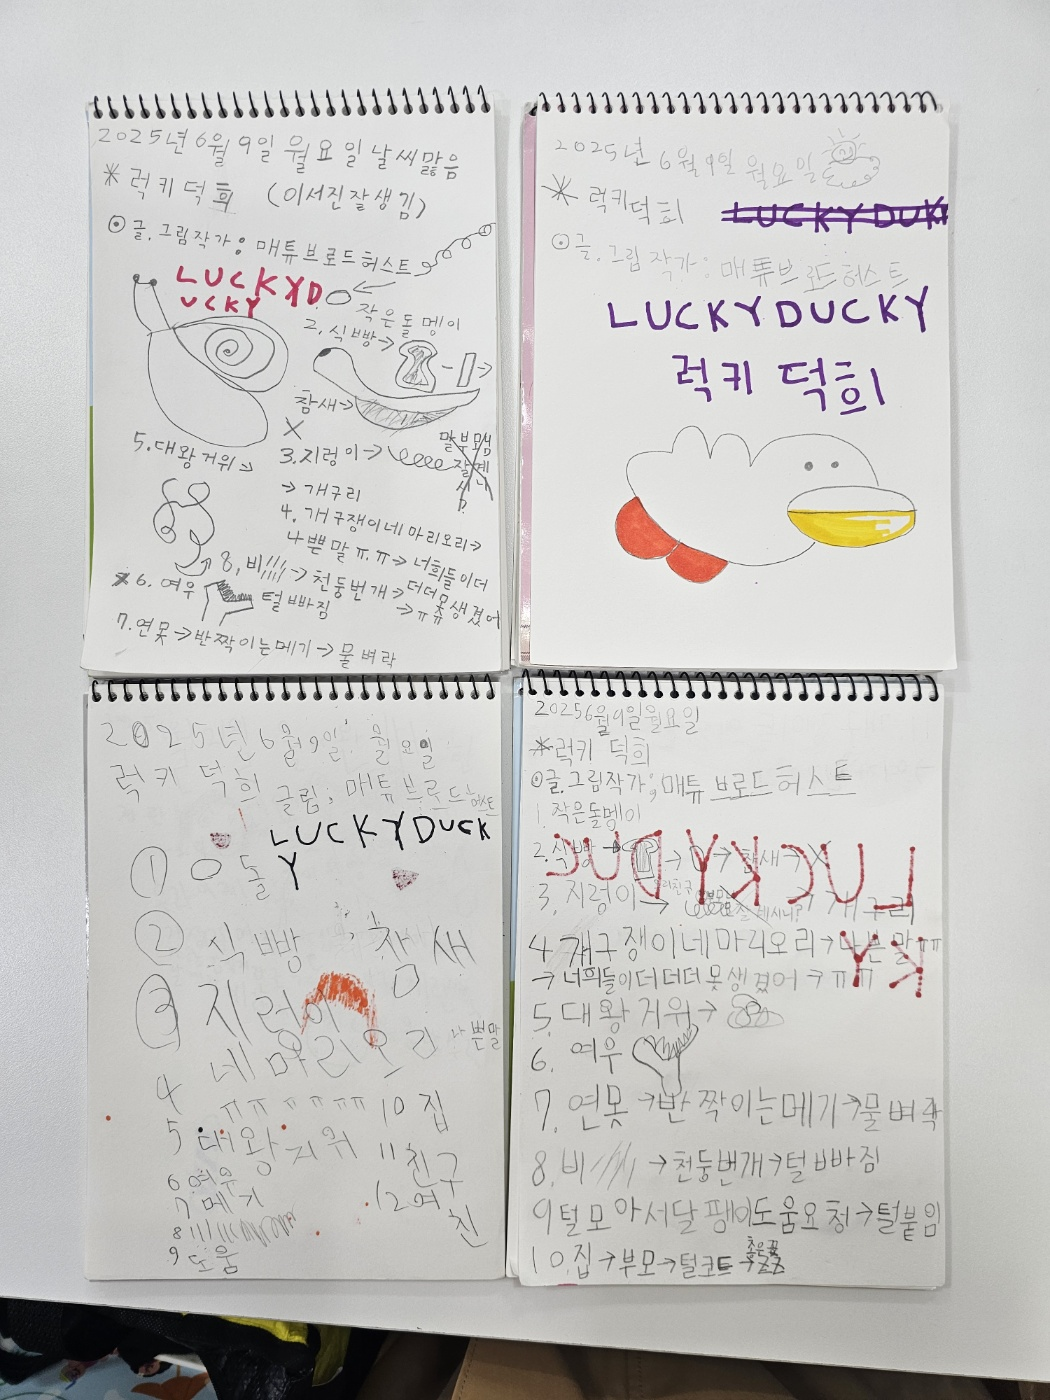 2025년 6월 9일 월요일 날씨맑음
* 럭키 덕희 (이서진잘생김)
⊙글.그림작가: 매튜 브로드허스트
LUCKYD
UCKY
작은돌멩이
2. 식빵→
참새→
X
5. 대왕거위→
3. 지렁이→
→ 개구리
4. 개구쟁이네마리오리→
나쁜말ㅠ.ㅠ→너희들이더
8. 비///→천둥번개→더더못생겼어
*6. 여우
털빠짐
→ㅠㅠ
7. 연못→반짝이는메기→물벼락
2025년 6월 9일 월요일
* 럭키덕희
LUCKY DUK
⊙글.그림작가: 매튜브로드허스트
LUCKYDUCKY
럭키 덕희
2025년 6월 9일 월요일
럭키 덕희 글림; 매튜 브로드허스트
LUCKYDUCK
Y
① 돌
② 식빵 참새
③ 지렁이
4 네마리오리 나쁜말
ㅠㅠㅠㅠㅠㅠ
5 대왕거위
6 여우
7 메기
8 비
9 도움
10 집
11 친구
12 여친
2025 6월9일월요일
*럭키 덕희
⊙글.그림작가; 매튜 브로드허스트
1. 작은돌멩이
2. 식빵→ → →참새→X
LUCKYDUC
KY
3. 지렁이→ →개구리
4. 개구쟁이네마리오리→나쁜말ㅠㅠ
→너희들이더더더못생겼어→ㅠㅠ
5. 대왕거위→
6. 여우
7. 연못→반짝이는메기→물벼락
8. 비////→천둥번개→털빠짐
9 털모아서달팽이도움요청→털붙임
10. 집→부모→털코트→좋은꿈
ZZ